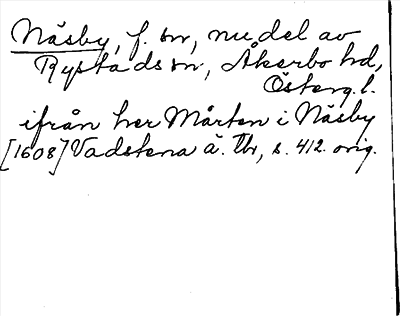 Näsby, f. sn, nu del av
Rystads sn, Åkerbo hd,
Österg.l.
ifrån her Mårten i Näsby
[1608] Vadstena ä. Tb, s. 412. orig.